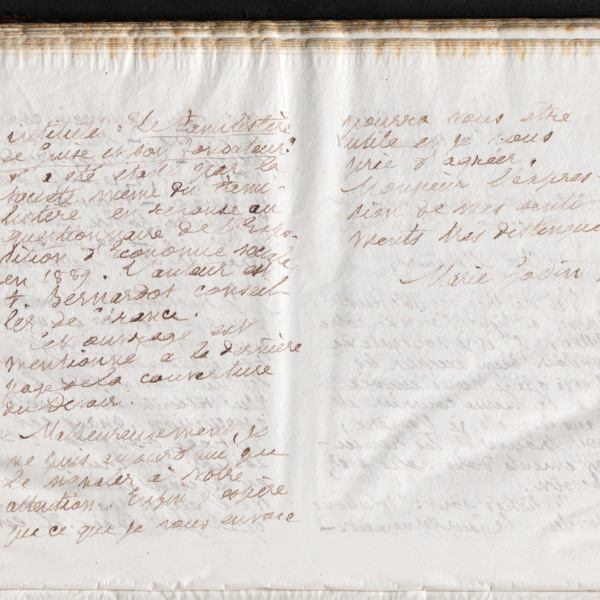 intitulé : Le Familistère
de Guise et son fondateur.
Il a été établi par la
société même du Fami-
listère en réponse au
questionnaire de l'Expo-
sition d'économie sociale
en 1889. L'auteur est
F. Bernardot conseil-
ler de Gérance.
Cet ouvrage est
mentionné à la dernière
page de la couverture
du Devoir.
Malheureusement, je
ne puis encore ici que
le signaler à votre
attention. Enfin j'espère
que ce que je vous envoie
pourra vous être
utile et je vous
prie d'agréer,
Monsieur l'expres-
sion de mes senti-
ments très distingués
Marie Godin